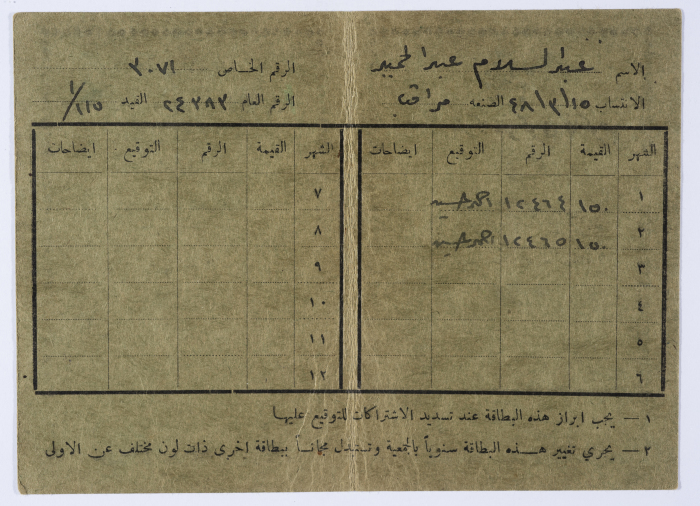 الاسم عبد السلام عبد الحميد الرقم الخاص ٣٠٧١
الانتساب ٤٨/٣/١٥ الصنعه مراقب الرقم العام ٢٤٣٨٣ القيد ١/١١٥
الشهر القيمة الرقم التوقيع ايضاحات الشهر القيمة الرقم التوقيع ايضاحات
١ ١٥٠ ١٢٤٦٤ احمد حسين ٧
٢ ١٥٠ ١٢٤٦٥ احمد حسين ٨
٣ ٩
٤ ١٠
٥ ١١
٦ ١٢
١ — يجب ابراز هذه البطاقة عند تسديد الاشتراكات للتوقيع عليها
٢ — يجري تغيير هذه البطاقة سنوياً بالجمعية وتستبدل مجاناً ببطاقة اخرى ذات لون مختلف عن الاولى